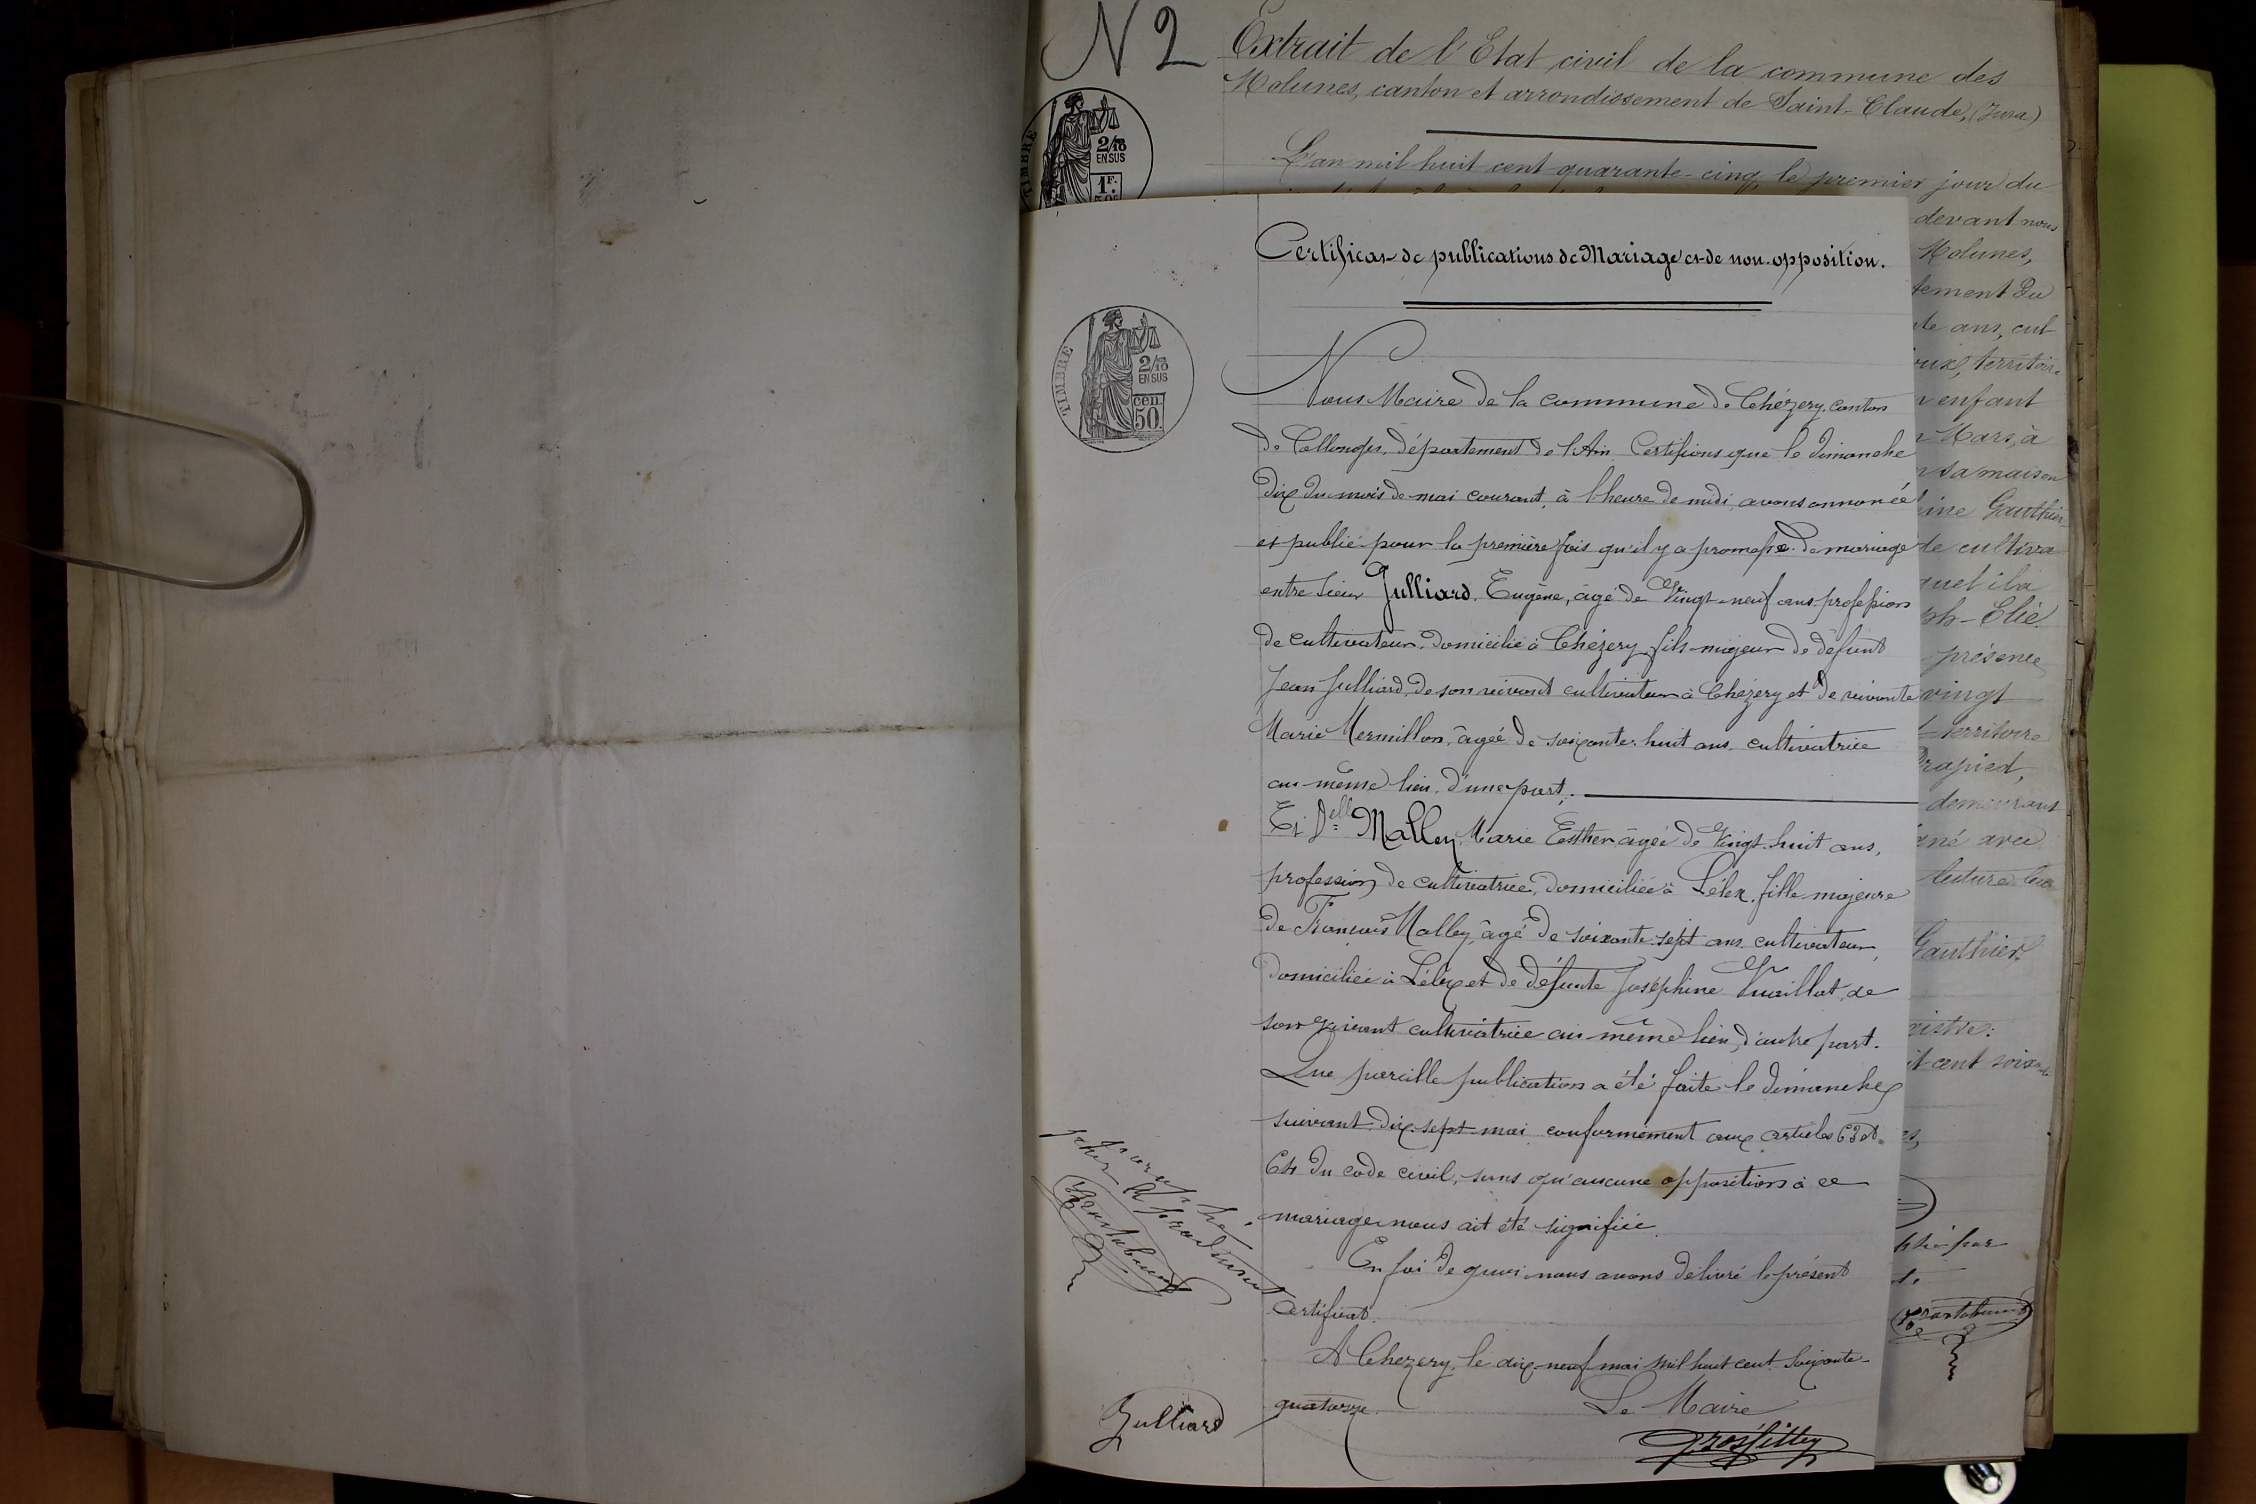 N 2
Extrait de l'Etat civil de la commune des
Molunes, canton et arrondissement de Saint-Claude, (Jura)
L'an mil huit cent quarante-cinq, le premier jour du
TIMBRE
2/10
EN SUS
1F.
devant nous
Molunes,
tement du
te ans, cul
oux, territoire
n enfant
Mars, à
sa maison
ine Gauthier
de cultiva
quel il a
ph-Elie
présence
vingt
territoire
Grapied,
demeurant
gné avec
lecture
Gauthier
gistre:
it cent soixante
es,
par
Certificat de publications de Mariage et de non-opposition.
TIMBRE
2/10
EN SUS
cen.
50.
Nous Maire de la commune de Chézery, canton
de Collonges, département de l'Ain Certifions que le dimanche
dix du mois de mai courant, à l'heure de midi, avons annoncé
et publié pour la première fois qu'il y a promesse de mariage
entre sieur Julliard, Eugène, âgé de Vingt-neuf ans profession
de cultivateur, domicilié à Chézery, fils majeur de défunt
Jean Julliard, de son vivant cultivateur à Chézery et de vivante
Marie Mermillon, âgée de soixante-huit ans, cultivatrice
au même lieu, d'une part,
Et Delle Malley, Marie Esther, âgée de Vingt-huit ans,
profession de cultivatrice, domiciliée à Lélex, fille majeure
de François Malley, âgé de soixante-sept ans, cultivateur,
domicilié à Lélex et de défunte Joséphine Vuaillat, de
son vivant cultivatrice au même lieu, d'autre part.
Que pareille publication a été faite le dimanche
suivant dix-sept mai conformément aux articles 63 et
64 du code civil, sans qu'aucune opposition à ce
mariage nous ait été signifiée.
En foi de quoi nous avons délivré le présent
certificat.
A Chezery, le dix-neuf mai mil huit cent soixante-
quatorze.
Le Maire
Grosfilley
Julliard